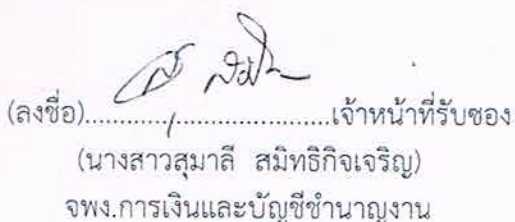 (ลงชื่อ)................................เจ้าหน้าที่รับซอง
(นางสาวสุมาลี สมิทธิกิจเจริญ)
จพง.การเงินและบัญชีชำนาญงาน